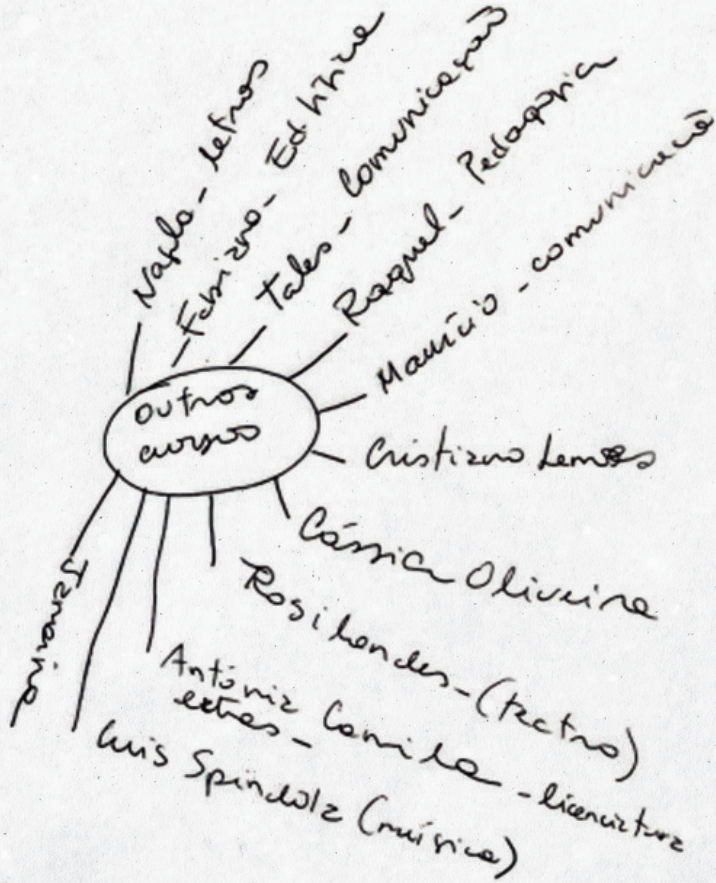 outros
cursos
Fabiano - Ed. Física
Tales - Comunicação
Raquel - Pedagogia
Maurício - comunicação
Cristiano Lemões
Cássia Oliveira
(teatro)
Antônia Camila - licenciatura
letras -
Luis Spindola (música)
Janaina
- letras